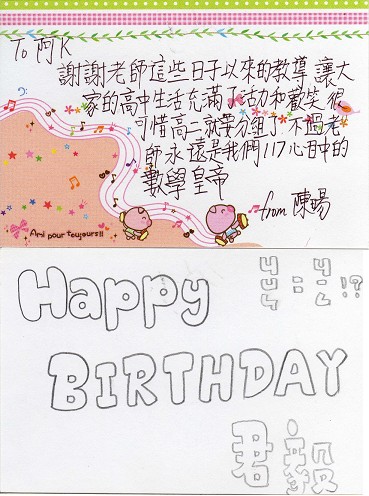 To 阿K
謝謝老師這些日子以來的教導 讓大
家的高中生活充滿了活力和歡笑 很
可惜高二就要分組了 不過老
師永遠是我們117心目中的
數學皇帝
from 陳暘
Ami pour toujours!!
Happy
BIRTHDAY
君毅